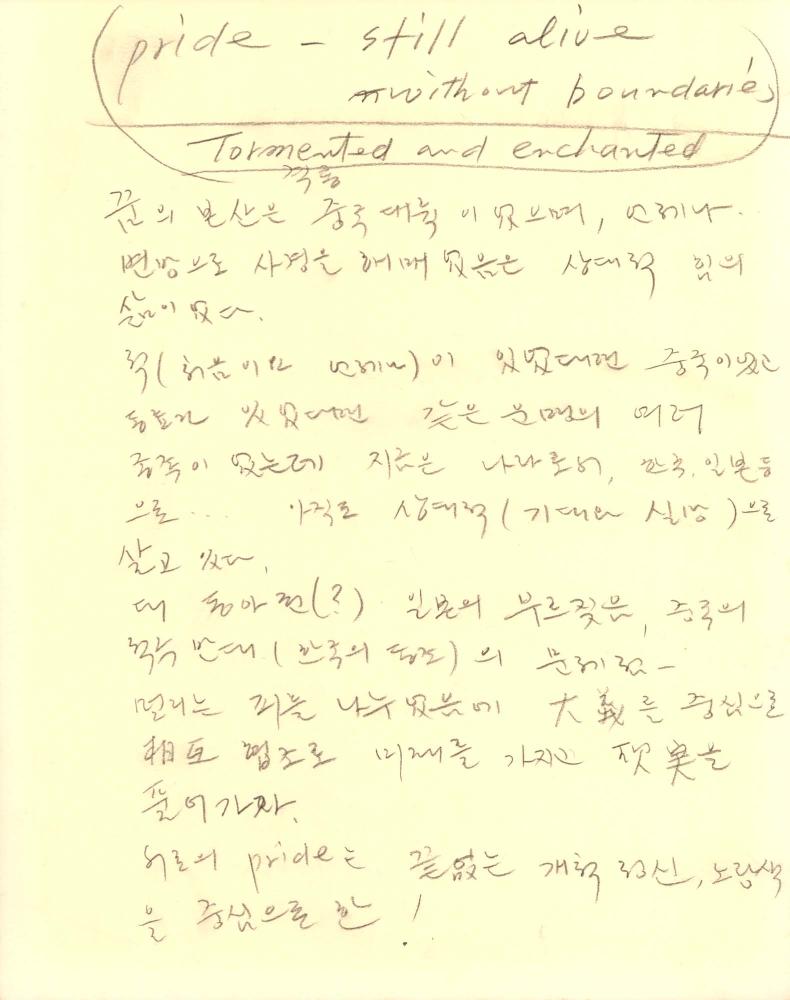 pride - still alive
without boundaries
Tormented and enchanted
격동
꿈의 본산은 중국 대륙 이였으며, 언제나
변방으로 사경을 헤매 였음은 상대적 힘의
삶이 였다.
적(처음이요 언제나)이 있었다면 중국이였고
동료가 있었다면 같은 운명의 여러
종족이 였는데 지금은 나라로서, 한국, 일본등
으로... 아직도 상대적(기대와 실망)으로
살고 있다.
대 동아 전(?) 일본의 부르짖음, 중국의
적수 반대 (한국의 동조)의 문제점 -
멀리는 피를 나누었음에 大義를 중심으로
相互 협조로 미래를 가지고 現実을
풀어가자.
서로의 pride는 끝없는 개척 정신, 노랑색
을 중심으로 한 !